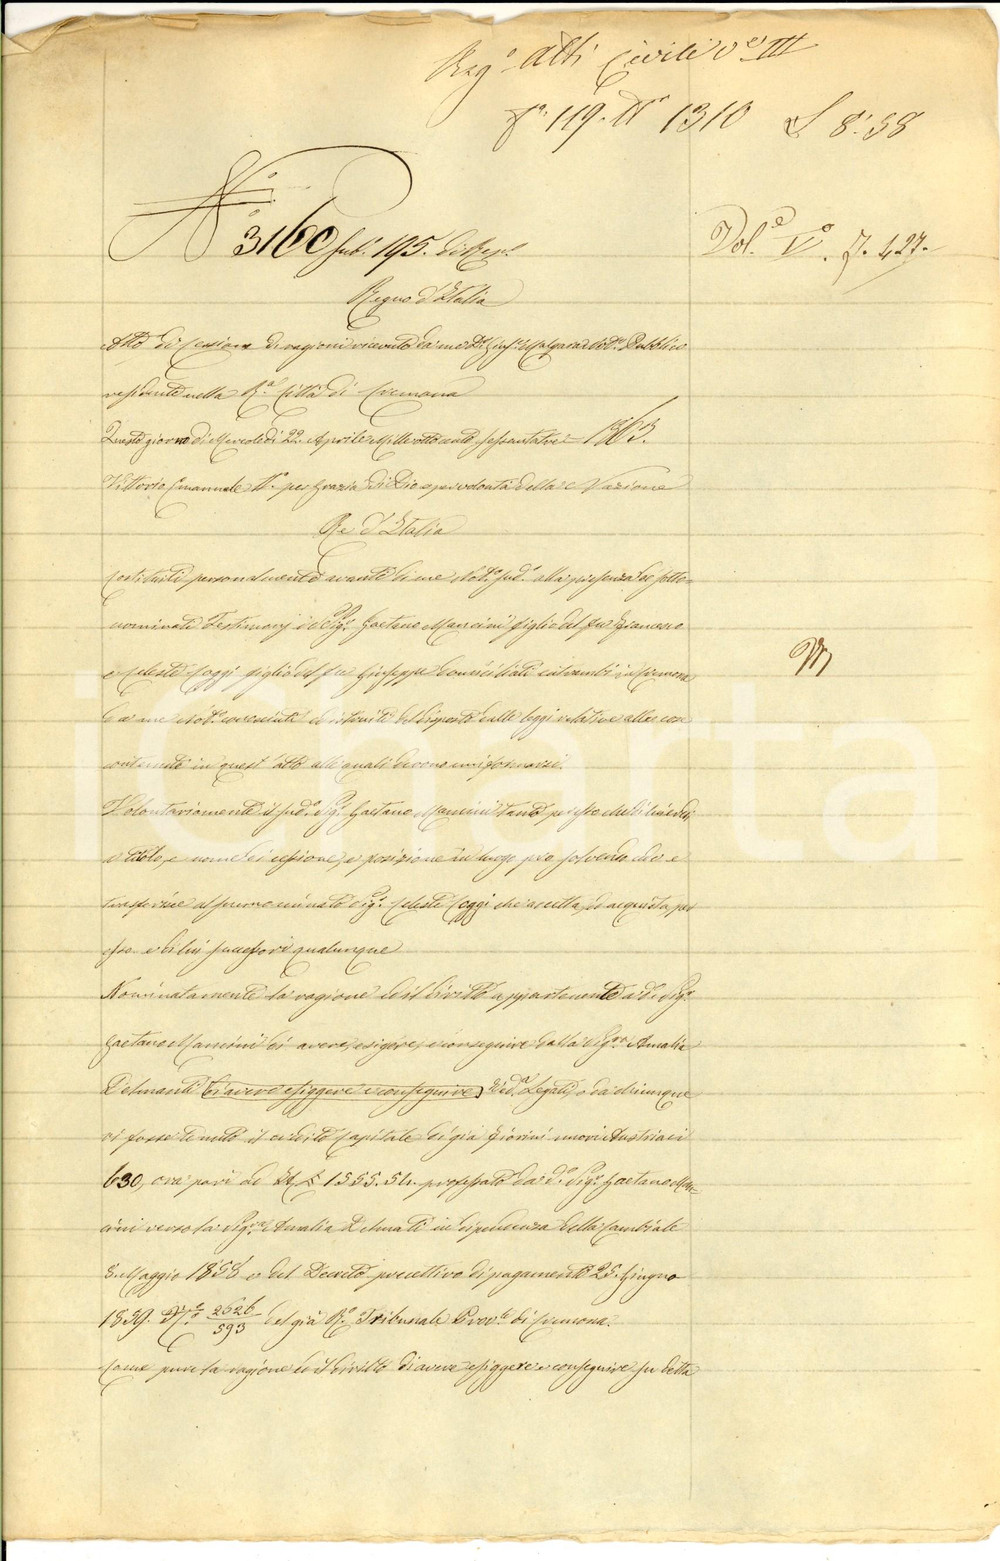 Reg.o Atti Civili V.e III
f.o 119. N.o 1310 £ 8:58
N.o 3160 sub. 195. di Rep.
Vol.e V.o f. 427.
Regno d'Italia
Atto di Cessione di ragioni ricevuto da me D.r Not.o Pubblico
residente nella R.a Città di Cremona
Questo giorno di Mercoledì 22. Aprile Milleottocento sessantatre 1863.
Vittorio Emanuele II.o per Grazia di Dio e per volontà della Nazione
Re d'Italia
Costituiti personalmente avanti di me Not.o sud.o alla presenza de sotto=
nominati Testimonj i Sig.i Gaetano Mancini figlio del fu Francesco
e Celeste Coggi figlio del fu Giuseppe domiciliati entrambi in Cremona
da me Not.o conosciuti ed istruiti del disposto dalle leggi relative alle cose
contenute in quest'atto alle quali devono uniformarsi.
Volontariamente il sud.o Sig.r Gaetano Mancini tanto per esso che di lui eredi
a titolo, e nome di cessione, e posizione in luogo pro solvendo cede e
trasferisce al summominato Sig.r Celeste Coggi che accetta, ed acquista per
esso e di lui successori qualunque
Nominatamente la ragione ed il diritto appartenente a d.o Sig.r
Gaetano Mancini di avere, esigere, e conseguire dalla Sig.ra Amalia
Delmanti di avere esiggere e conseguire Ved.a Legati, o da chiunque
vi fosse tenuto il credito Capitale di già fiorini nuovi Austriaci
630, ora pari ad It. £ 1555. 51. professato da d.o Sig.r Gaetano Man=
cini verso la Sig.ra Amalia Delmati in dipendenza della Cambiale
8. Maggio 1858 e del Decreto precettivo di pagamento 25. Giugno
1859. N.o 2626/593 del già R.o Tribunale Prov.e di Cremona.
Come pure la ragione ed il diritto di avere esiggere e conseguire su detta
iCharta